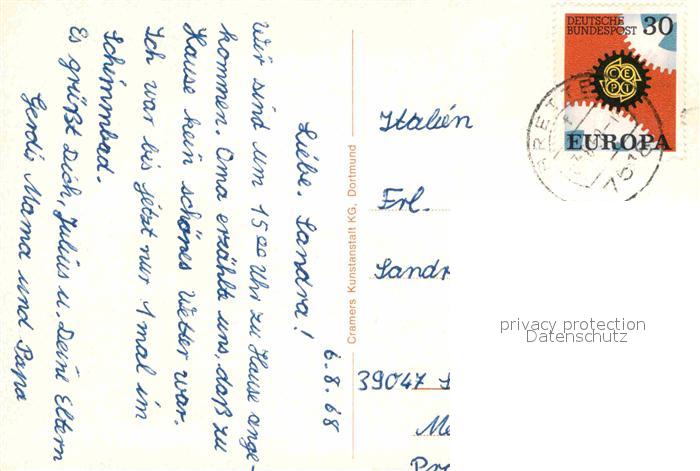 6.8.68
Liebe Sandra!
Wir sind um 15⁰⁰ Uhr zu Hause ange-
kommen. Oma erzählte uns, daß zu
Hause kein schönes Wetter war.
Ich war bis jetzt nur 1 mal im
Schwimmbad.
Es grüßt Dich, Julius u. Deine Eltern
Gerdis Mama und Papa
Cramers Kunstanstalt KG, Dortmund
DEUTSCHE
BUNDESPOST 30
CEPT
EUROPA
Italien
Frl.
Sandr
39047
privacy protection
Datenschutz